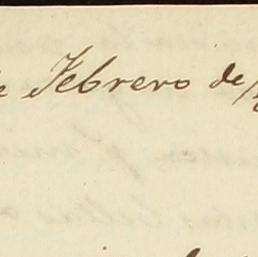 de Febrero de